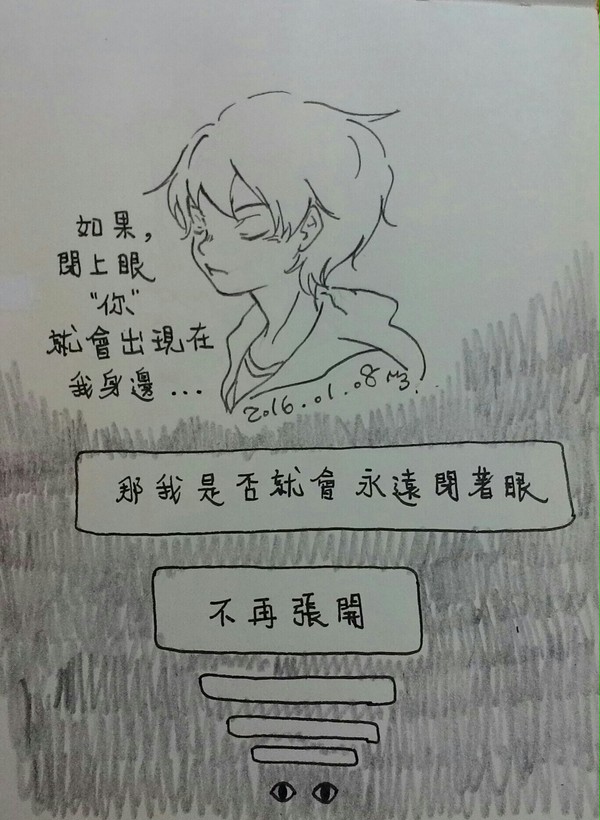 如果，
閉上眼
"你"
就會出現在
我身邊...
2016.01.08
那我是否就會永遠閉著眼
不再張開